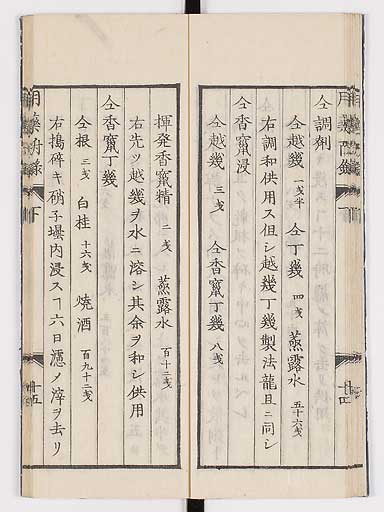 仝調剤
仝越幾 一戔半 仝丁幾 四戔 蒸露水 五十六戔
右調和供用ス但シ越幾丁幾製法龍且ニ同シ
仝香竄浸
仝越幾 三戔 仝香竄丁幾 八戔
十四
揮発香竄精 二戔 蒸露水 百十二戔
右先ツ越幾ヲ水ニ溶シ其余ヲ和シ供用
仝香竄丁幾
仝根 三戔 白桂 十六戔 焼酒 百九十二戔
右搗碎キ硝子壜内浸スヿ六日濾メ滓ヲ去リ
下
十五